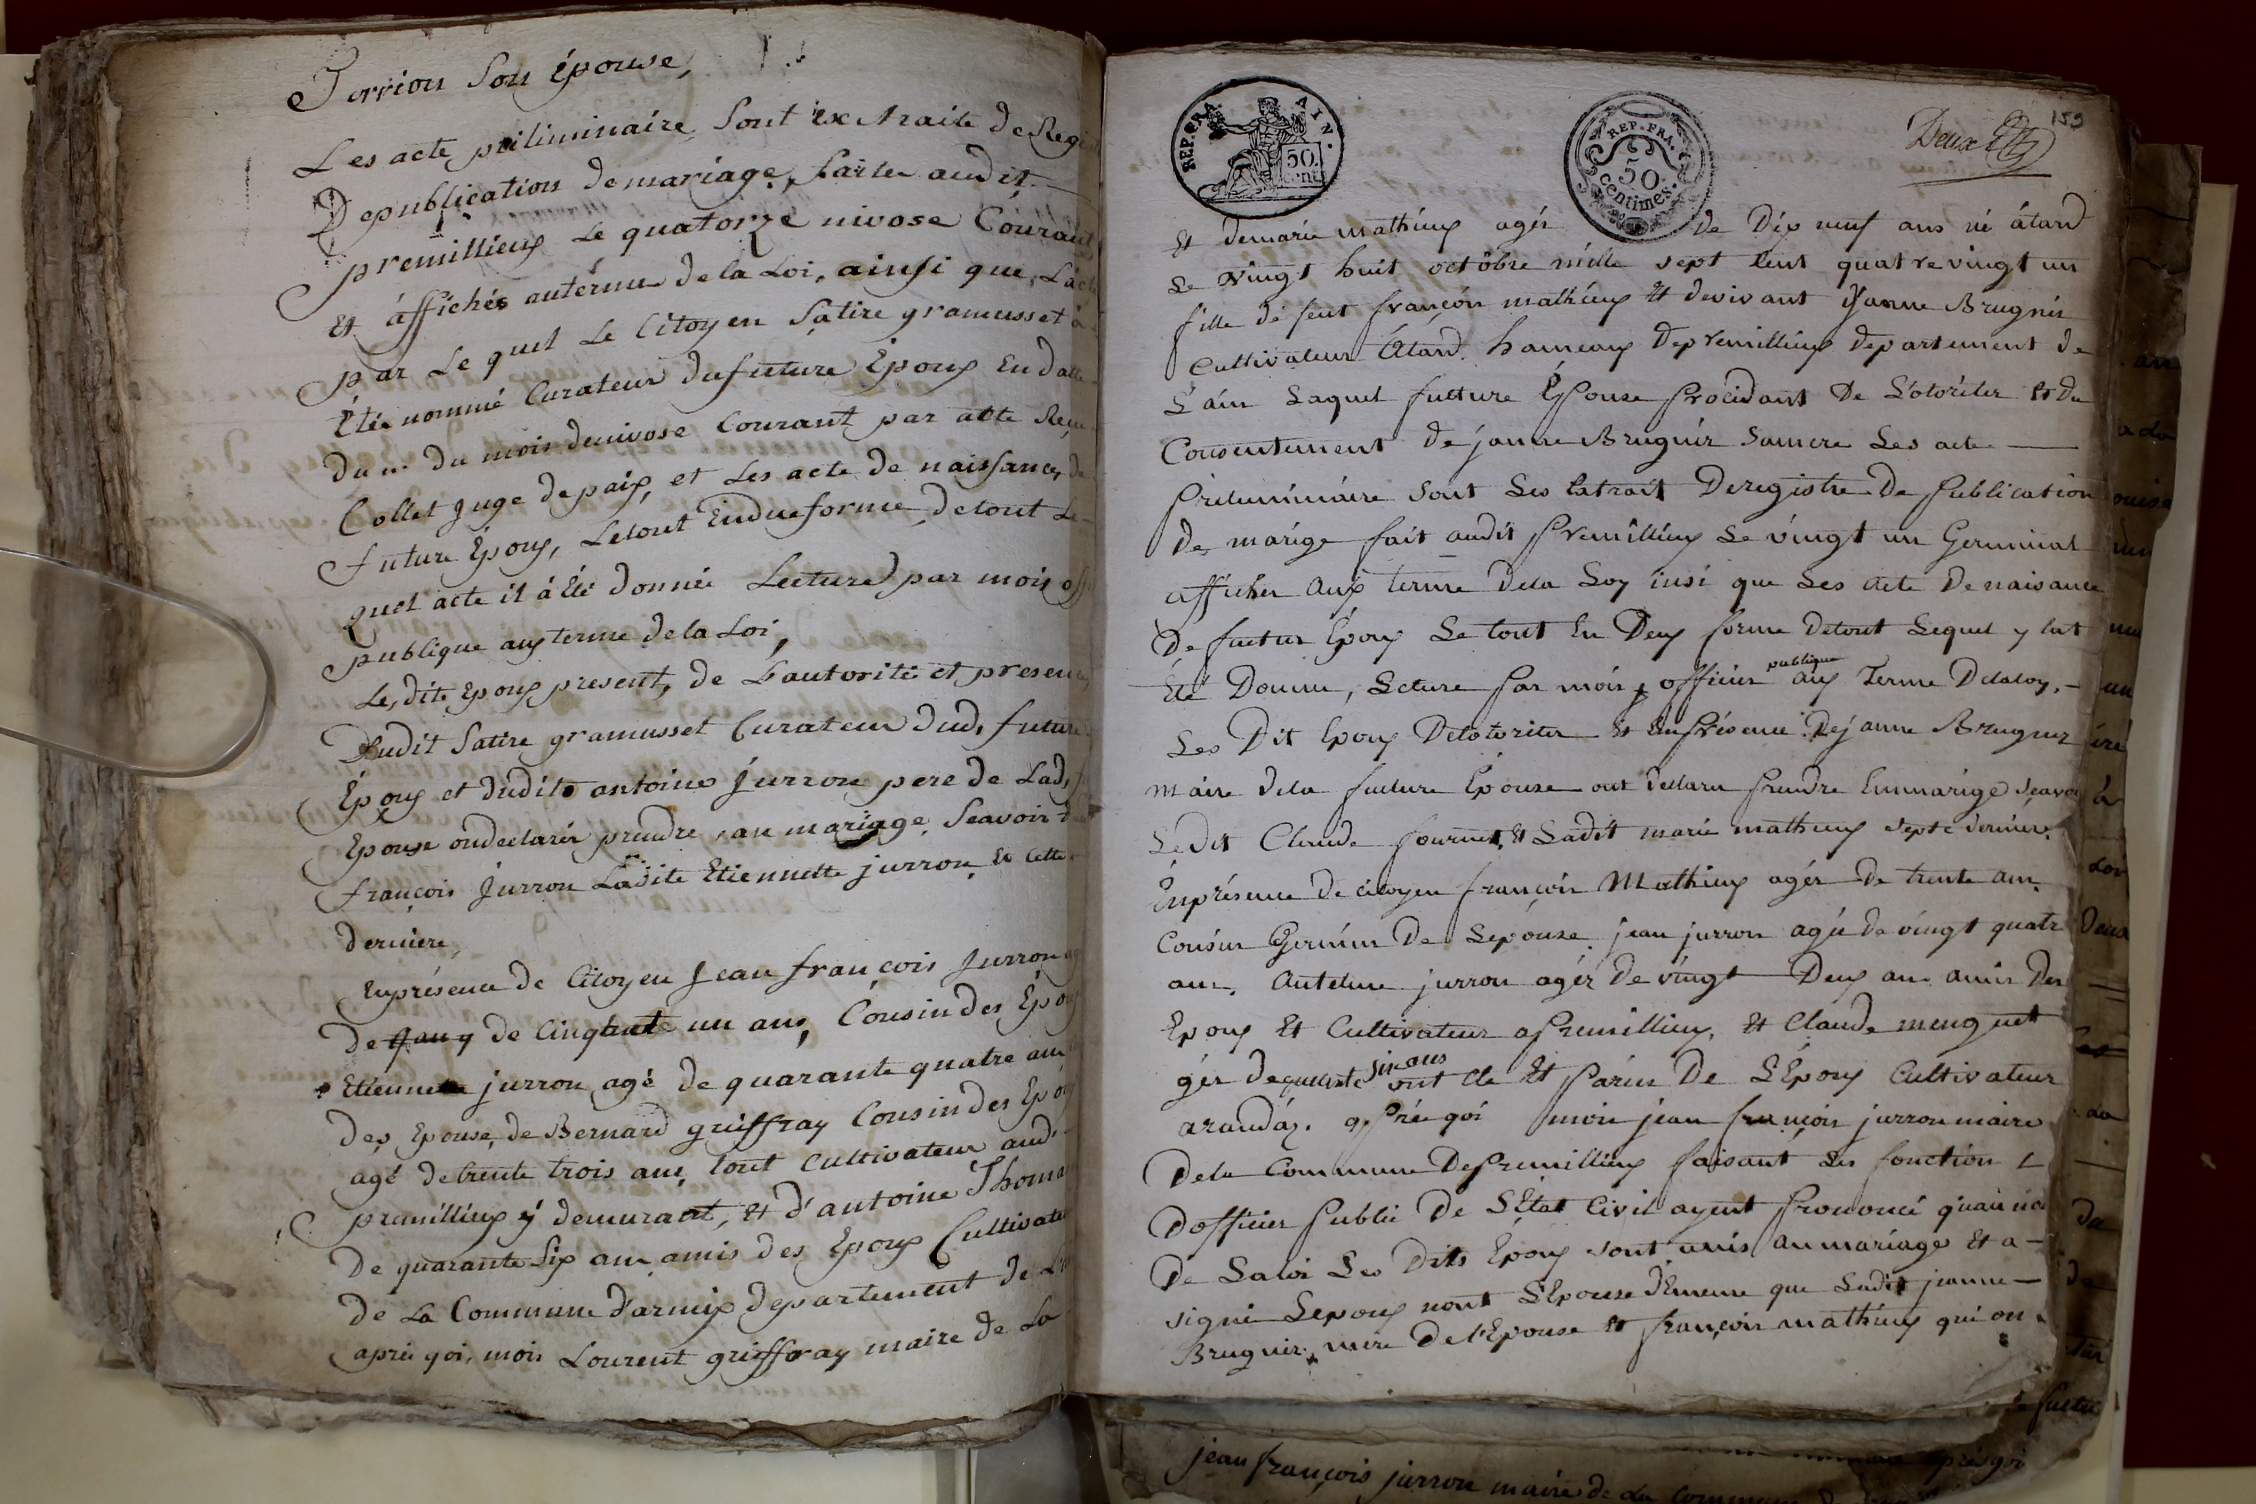 Jorrion son épouse,
Les acte préliminaire sont Extraite de Regi
De publication de mariage, faites audit
premillieux Le quatorze nivose Courant
Et affichés auterme de la Loi, ainsi que, L'acte
par Le quel Le Citoyen Satire gramusset à
Été nommé Curateur du future Époux En datte
du .. du mois de nivose Courant par acte Reçu
Collet juge de paix, et Les acte de naissance, de
future Époux, Le tout Endue forme, de tout Le
quel acte il à été donnée Lecture par mois off
publique aux terme de la Loi,
Le, dits Epoux present, de L'autorité et presence
Dudit Satire gramusset Curateur dud, future
Époux et dudit antoine jurron pere de Lad, f
Epouse ondeclarér prendre, an mariage, Seavoir
françois Jurron Ladite Etiennette jurron, Et cette
derniere,
Enprésence de Citoyen Jean françois Jurron ag
De de Cinqtante un ans, Cousin des Époux
Etienne jurron agé de quarante quatre ans
Des Epouse, de Bernard griffray Cousin des Époux
agé de trente trois ans, tout Cultivateur aud.
premillieux y demurant, et d'antoine Thoma
De quarante Six ans amis des Epoux Cultivate
de La Commune d'armix departement de L'
après qoi, mois Lourent griffray maire de La
REP. FRA. AIN.
50. cent.
REP. FRA.
50
centimes.
Deux
159
Et demarie mathieux agér de Dix neuf ans né átard
Le vingt huit octôbre mille sept Cent quatre vingt un
fille de feut françoin mathieux Et de vivant Jeanne Brugnir
Cultivateur Átard. hameaux De premillieux Departement de
L'áin Laquel future Épouse procidant De L'otoriter et du
Consentement de jeanne Brugnir samere Les acte
préleminaire sont Les Extrait De registre De publication
De marige fait audit premillieux Le vingt un Germinal
afficher aux terme Dela Loy insi que Les Acte De naisance
De fuetur Époux Le tout En Deux forme De tout Lequel y lat
Été Donnu, Lcture par mois officier publique aux Terme Delaloy,
Les Dit Époux Delotoriter Et Enprésence De jeanne Brugner
maire dela future Épouse ont dellaru prendre Enmarige seavoi
Le dit Claude fournet, Et Ladit marie mathieux septe dernier.
Enprésence de citoyen françoin Mathieux agér de trente ans
Cousin Germin De Lépouse. jean jurron agée de vingt quatr
ans. Antelme jurron agér De vingt Deux an amis Des
Epoux Et Cultivateur a premillieux. Et Claude menguet
gér De quarante six ans ont cle Et parin De L'Époux Cultivateur
arandáz. aprée qoi mois jean françoin jurron maire
Dela Commune De premillieux faisant Les fonction
D'officier public De L'État Civil ayent prononcé q'uai no
De Laloi Les Dits Epoux sont unis au mariage Et a
signé Lepoux nont L'Epouse d'Emeure que Ladit jeanne
Brugnir, mere De l'Epouse Et françoin mathieux qui on
jean françois jurron maire de la Commune